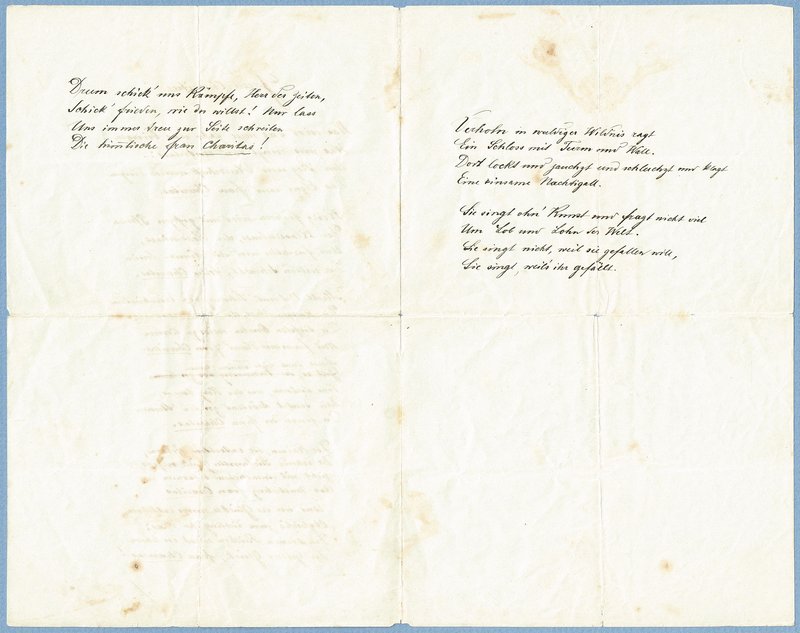 Drum schick' uns Kämpfe, Herr der Zeiten,
Schick' Frieden, wie du willst! Nur lass
Uns immer treu zur Seite schreiten
Die himmlische Frau Charitas!
Verhohn in waldiger Wildnis ragt
Ein Schloss mit Turm und Wall.
Dort lockt und jauchzt und schluchzt und klagt
Eine einsame Nachtigall.
Sie singt ohn' Kunst und fragt nicht viel
Um Lob und Lohn der Welt.
Sie singt nicht, weil sie gefallen will,
Sie singt, weil's ihr gefällt.